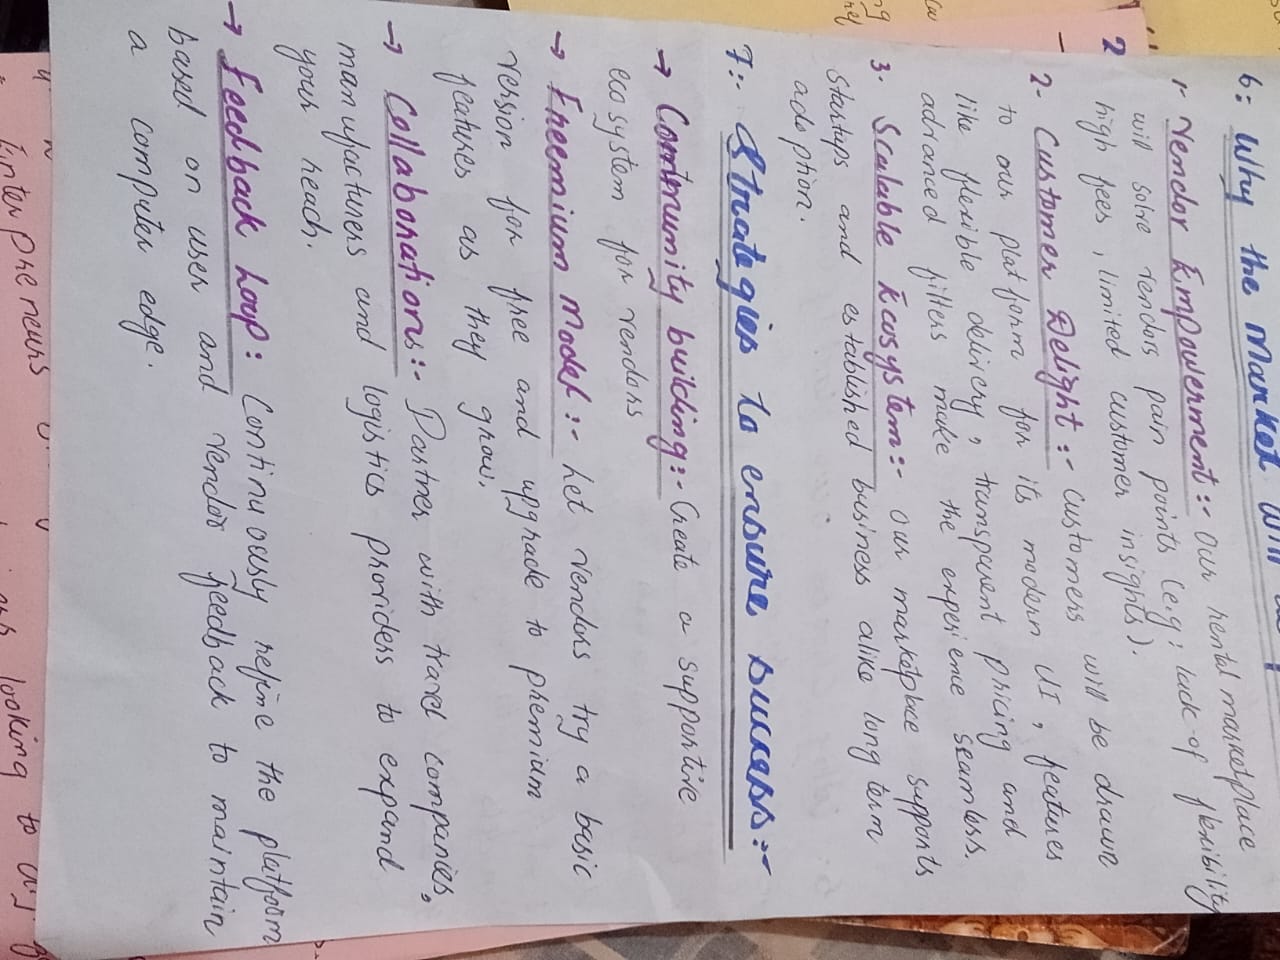 6: Why the Market will
1. Vendor Empowerment:- Our rental marketplace
will solve vendors pain points (e.g: lack of flexibility
high fees, limited customer insights).
2. Customer Delight:- customers will be drawn
to our platform for its modern UI, features
like flexible delivery, transparent pricing and
advanced filters make the experience seamless.
3. Scalable Ecosystem:- our marketplace supports
startups and established business alike long term
adoption.
7:- Strategies to ensure success:-
→ Community building:- Create a supportive
ecosystem for vendors
→ Freemium model:- Let vendors try a basic
version for free and upgrade to premium
features as they grow.
→ Collaborations:- Partner with travel companies,
manufacturers and logistics providers to expand
your reach.
→ Feedback loop: Continuously refine the platform
based on user and vendor feedback to maintain
a computer edge.
Enterpreneurs
looking to